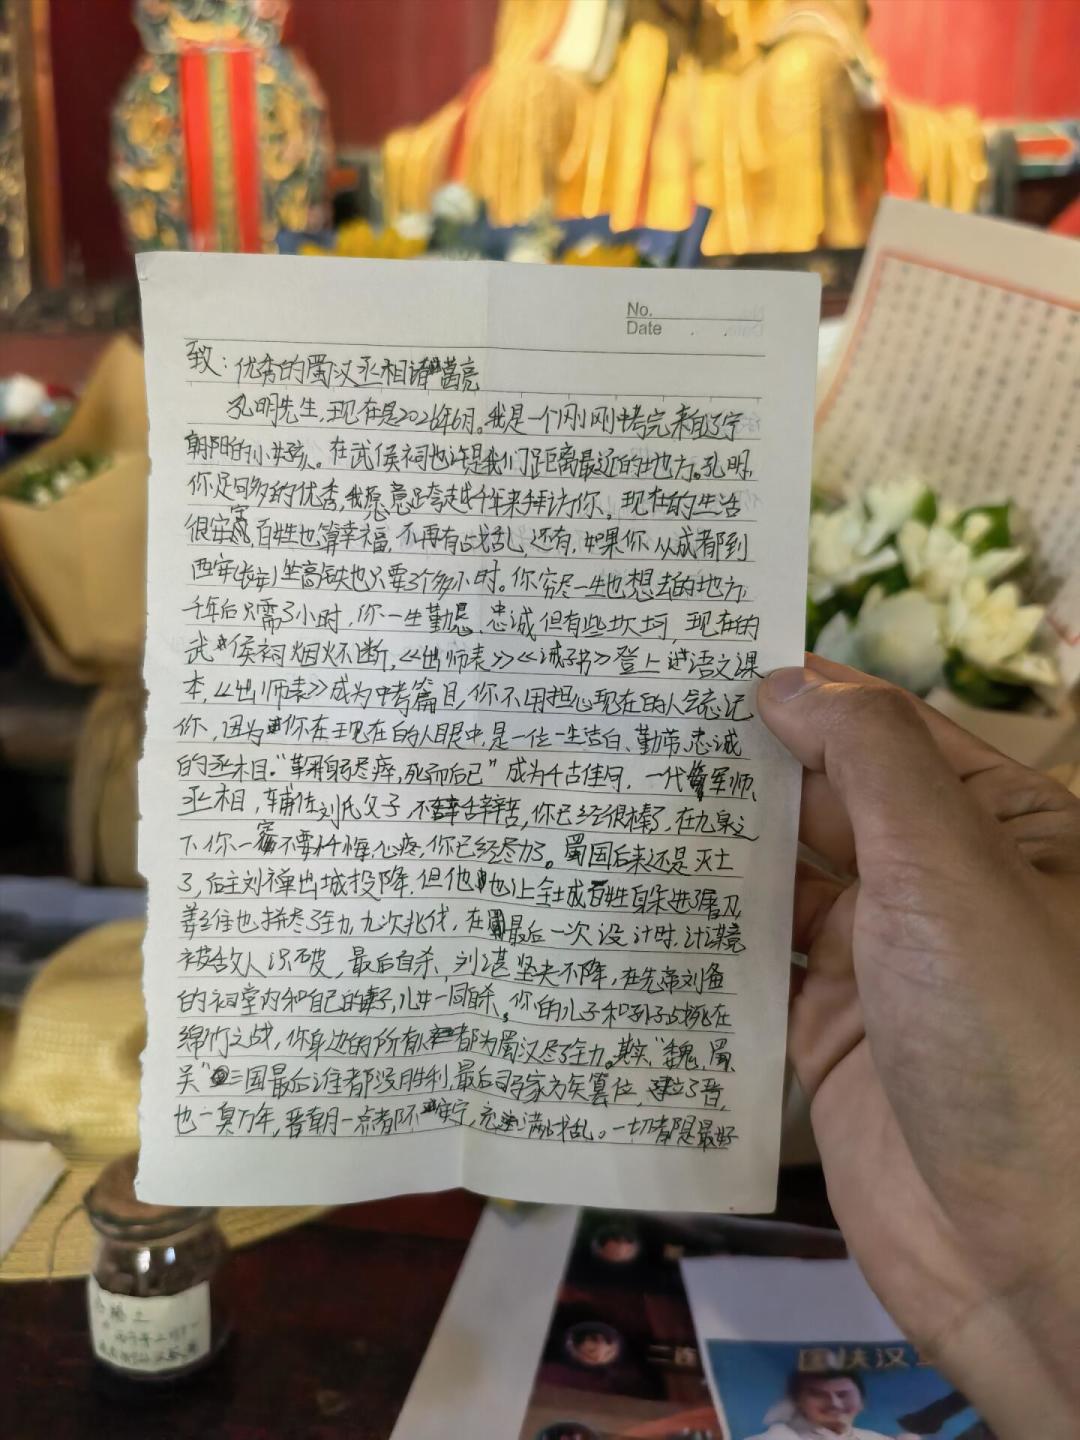 No.
Date
致：优秀的蜀汉丞相诸葛亮
孔明先生，现在是2026年6月。我是一个刚刚中考完来自辽宁
朝阳的小女孩。在武侯祠也许是我们距离最近的地方。孔明，
你足够多的优秀，我愿意足夸越千年来拜访你。现在的生活
很安宁，百姓也算幸福，不再有战乱，还有，如果你从成都到
西安(长安)坐高铁也只要3个多小时。你穷尽一生也想去的地方，
千年后只需3小时，你一生勤恳、忠诚但有些坎坷，现在的
武侯祠烟火不断，《出师表》《诫子书》登上过语文课
本，《出师表》成为中考篇目，你不用担心现在的人会忘记
你，因为你在现在的人眼中，是一位一生洁白、勤劳、忠诚
的丞相。“鞠躬尽瘁，死而后已”成为千古佳句，一代军师、
丞相，辅佐刘氏父子，不辞辛苦，你已经很棒了，在九泉之
下你一定不要忏悔、心疼，你已经尽力了。蜀国后来还是灭亡
了，后主刘禅出城投降，但他也让全城百姓身躲进了屠刀，
姜维也拼尽了全力，九次北伐，在最后一次设计时，计谋竟
被敌人识破，最后自杀、刘谌坚决不降，在先帝刘备
的祠堂内和自己的妻子，儿女一同自杀。你的儿子和孙子战死在
绵竹之战，你身边的所有人都为蜀汉尽了全力。其实，“魏、蜀、
吴”三国最后谁都没胜利，最后司马家为矣篡位，建立了晋，
也一臭万年，晋朝一点都不安宁，充满战乱。一切都是最好
二连